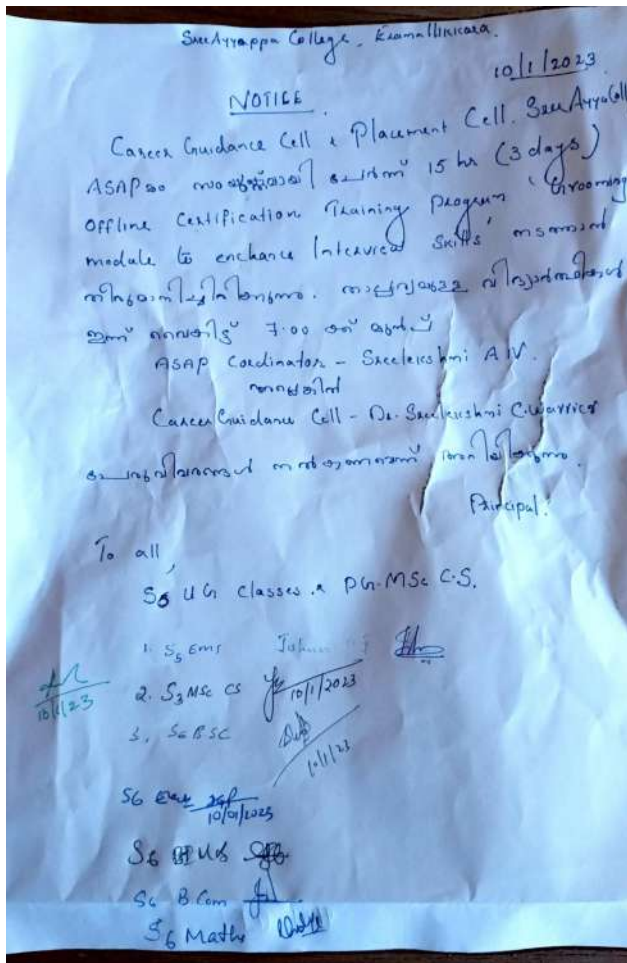 Sree Ayyappa College, Eramallikkara.
10/1/2023
NOTICE
Career Guidance Cell & Placement Cell. Sree Ayya Coll
ASAP മായി ചേർന്ന് 15 hr (3 days)
Offline Certification Training Program 'Grooming
module to enchance Interview Skills' നടത്താൻ
തീരുമാനിച്ചിരിക്കുന്നു. താല്പര്യമുള്ള വിദ്യാർത്ഥികൾ
ഇന്ന് വൈകിട്ട് 7.00 ന് മുൻപ്
ASAP Coordinator - Sreelekshmi A V.
അല്ലെങ്കിൽ
Career Guidance Cell - Dr. Sreelekshmi C. Warrier
പേരുവിവരങ്ങൾ നൽകണമെന്ന് അറിയിക്കുന്നു.
Principal.
To all,
S6 UG Classes & PG-MSc C.S.
1. S5 Ems
2. S3 MSc CS 10/1/2023
10/1/23
3. S6 BSC 10/1/23
S6
10/01/2023
S6
S6 B.Com
S6 Maths